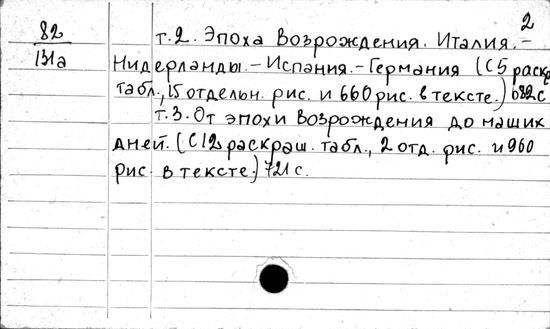 2
82
131а
т.2. Эпоха Возрождения. Италия.-
Нидерланды.-Испания.-Германия (С 5 раскр
табл., 15 отдельн. рис. и 660 рис. в тексте.) 682 с
т.3. От эпохи Возрождения до наших
дней. (С 12 раскраш. табл., 2 отд. рис. и 960
рис. в тексте.) 721 с.